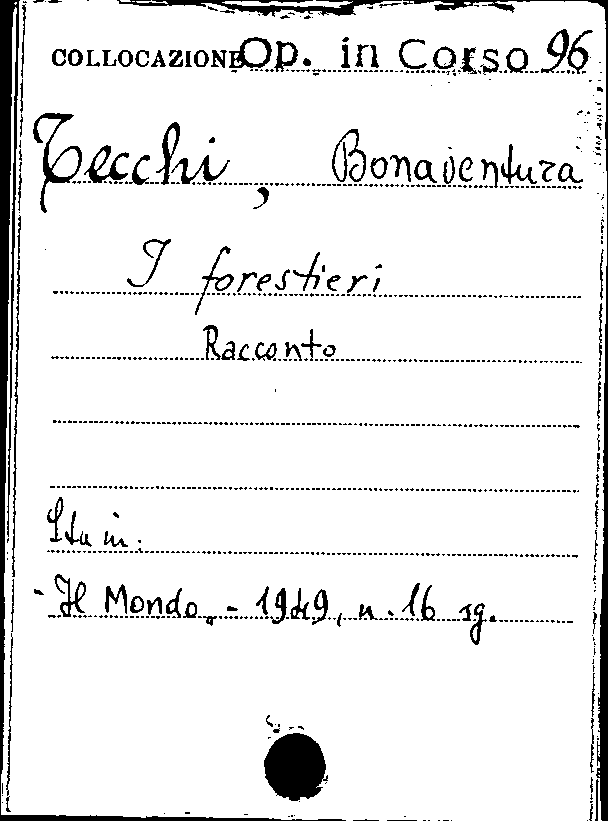 COLLOCAZIONE Op. in Corso 96
Tecchi, Bonaventura
I forestieri
Racconto
Sta in:
- Il Mondo. - 1949, n. 16 sg.